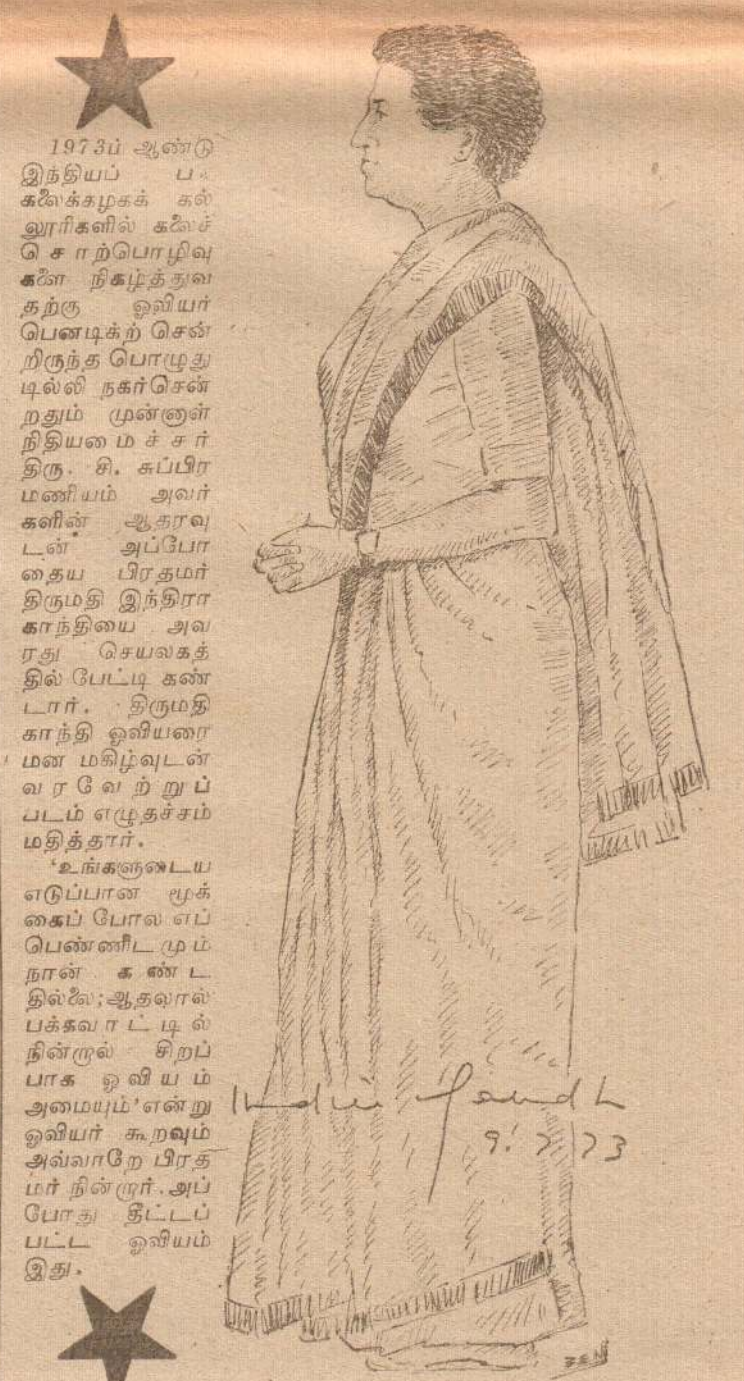 1973ப் ஆண்டு
இந்தியப் ப
கலைக்கழகக் கல்
லூரிகளில் கலைச்
சொற்பொழிவு
களை நிகழ்த்துவ
தற்கு ஓவியர்
பெனடிக்ற் சென்
றிருந்த பொழுது
டில்லி நகர்சென்
றதும் முன்னாள்
நிதியமைச்சர்
திரு. சி. சுப்பிர
மணியம் அவர்
களின் ஆதரவு
டன் அப்போ
தைய பிரதமர்
திருமதி இந்திரா
காந்தியை அவ
ரது செயலகத்
தில் பேட்டி கண்
டார். திருமதி
காந்தி ஓவியரை
மன மகிழ்வுடன்
வரவேற்றுப்
படம் எழுதச்சம்
மதித்தார்.
'உங்களுடைய
எடுப்பான மூக்
கைப் போல எப்
பெண்ணிடமும்
நான் கண்ட
தில்லை; ஆதலால்
பக்கவாட்டில்
நின்றால் சிறப்
பாக ஓவியம்
அமையும்' என்று
ஓவியர் கூறவும்
அவ்வாறே பிரத
மர் நின்றார். அப்
போது தீட்டப்
பட்ட ஓவியம்
இது.
Indira Gandhi
9.7.73
BEN